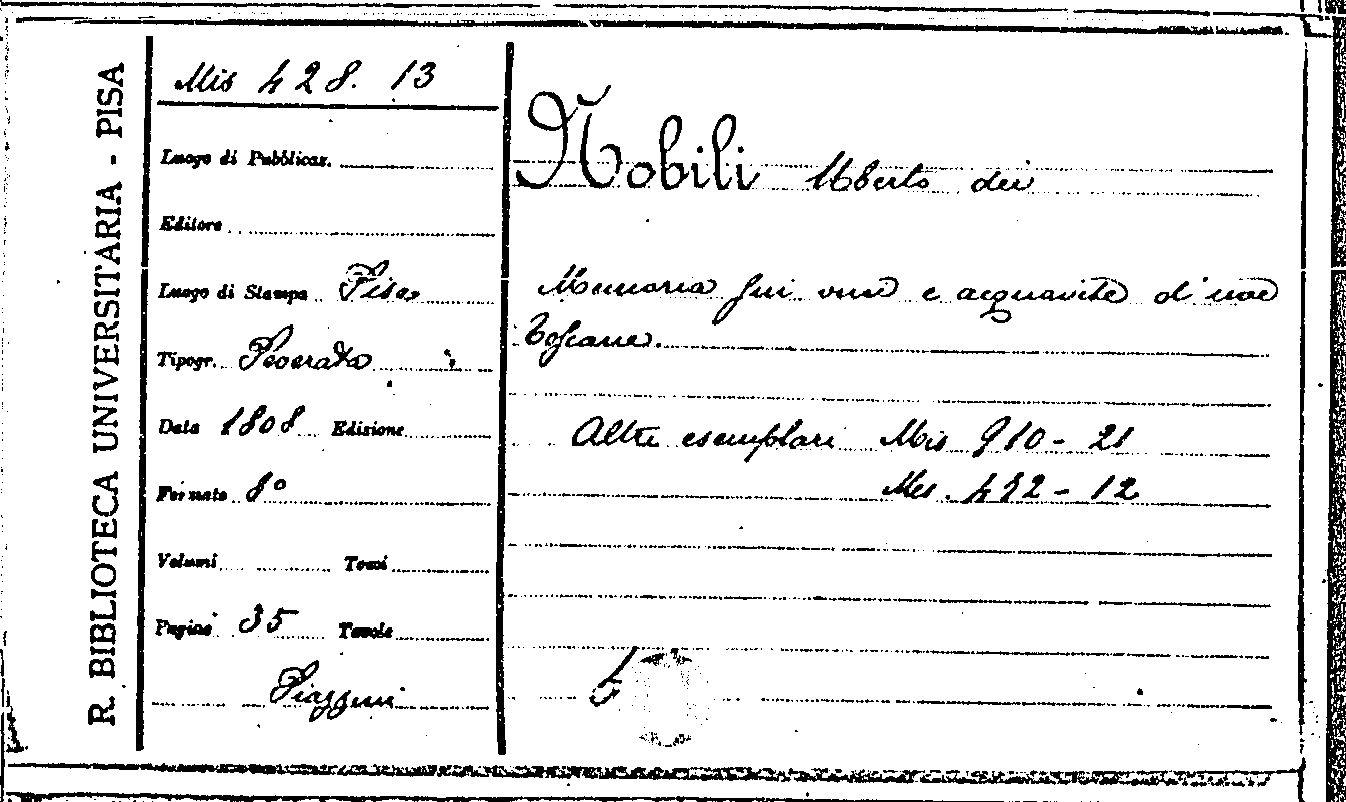 R. BIBLIOTECA UNIVERSITARIA - PISA
Mis 428. 13
Luogo di Pubblicaz.
Editore
Luogo di Stampa Pisa
Tipogr. Peverata
Data 1808 Edizione
Formato 8°
Volumi Tomi
Pagine 35 Tavole
Piazzini
Nobili Uberto dei
Memoria sui vini e acquavite d'uve
Toscane.
Altri esemplari Mis 910 - 21
Mis. 452 - 12